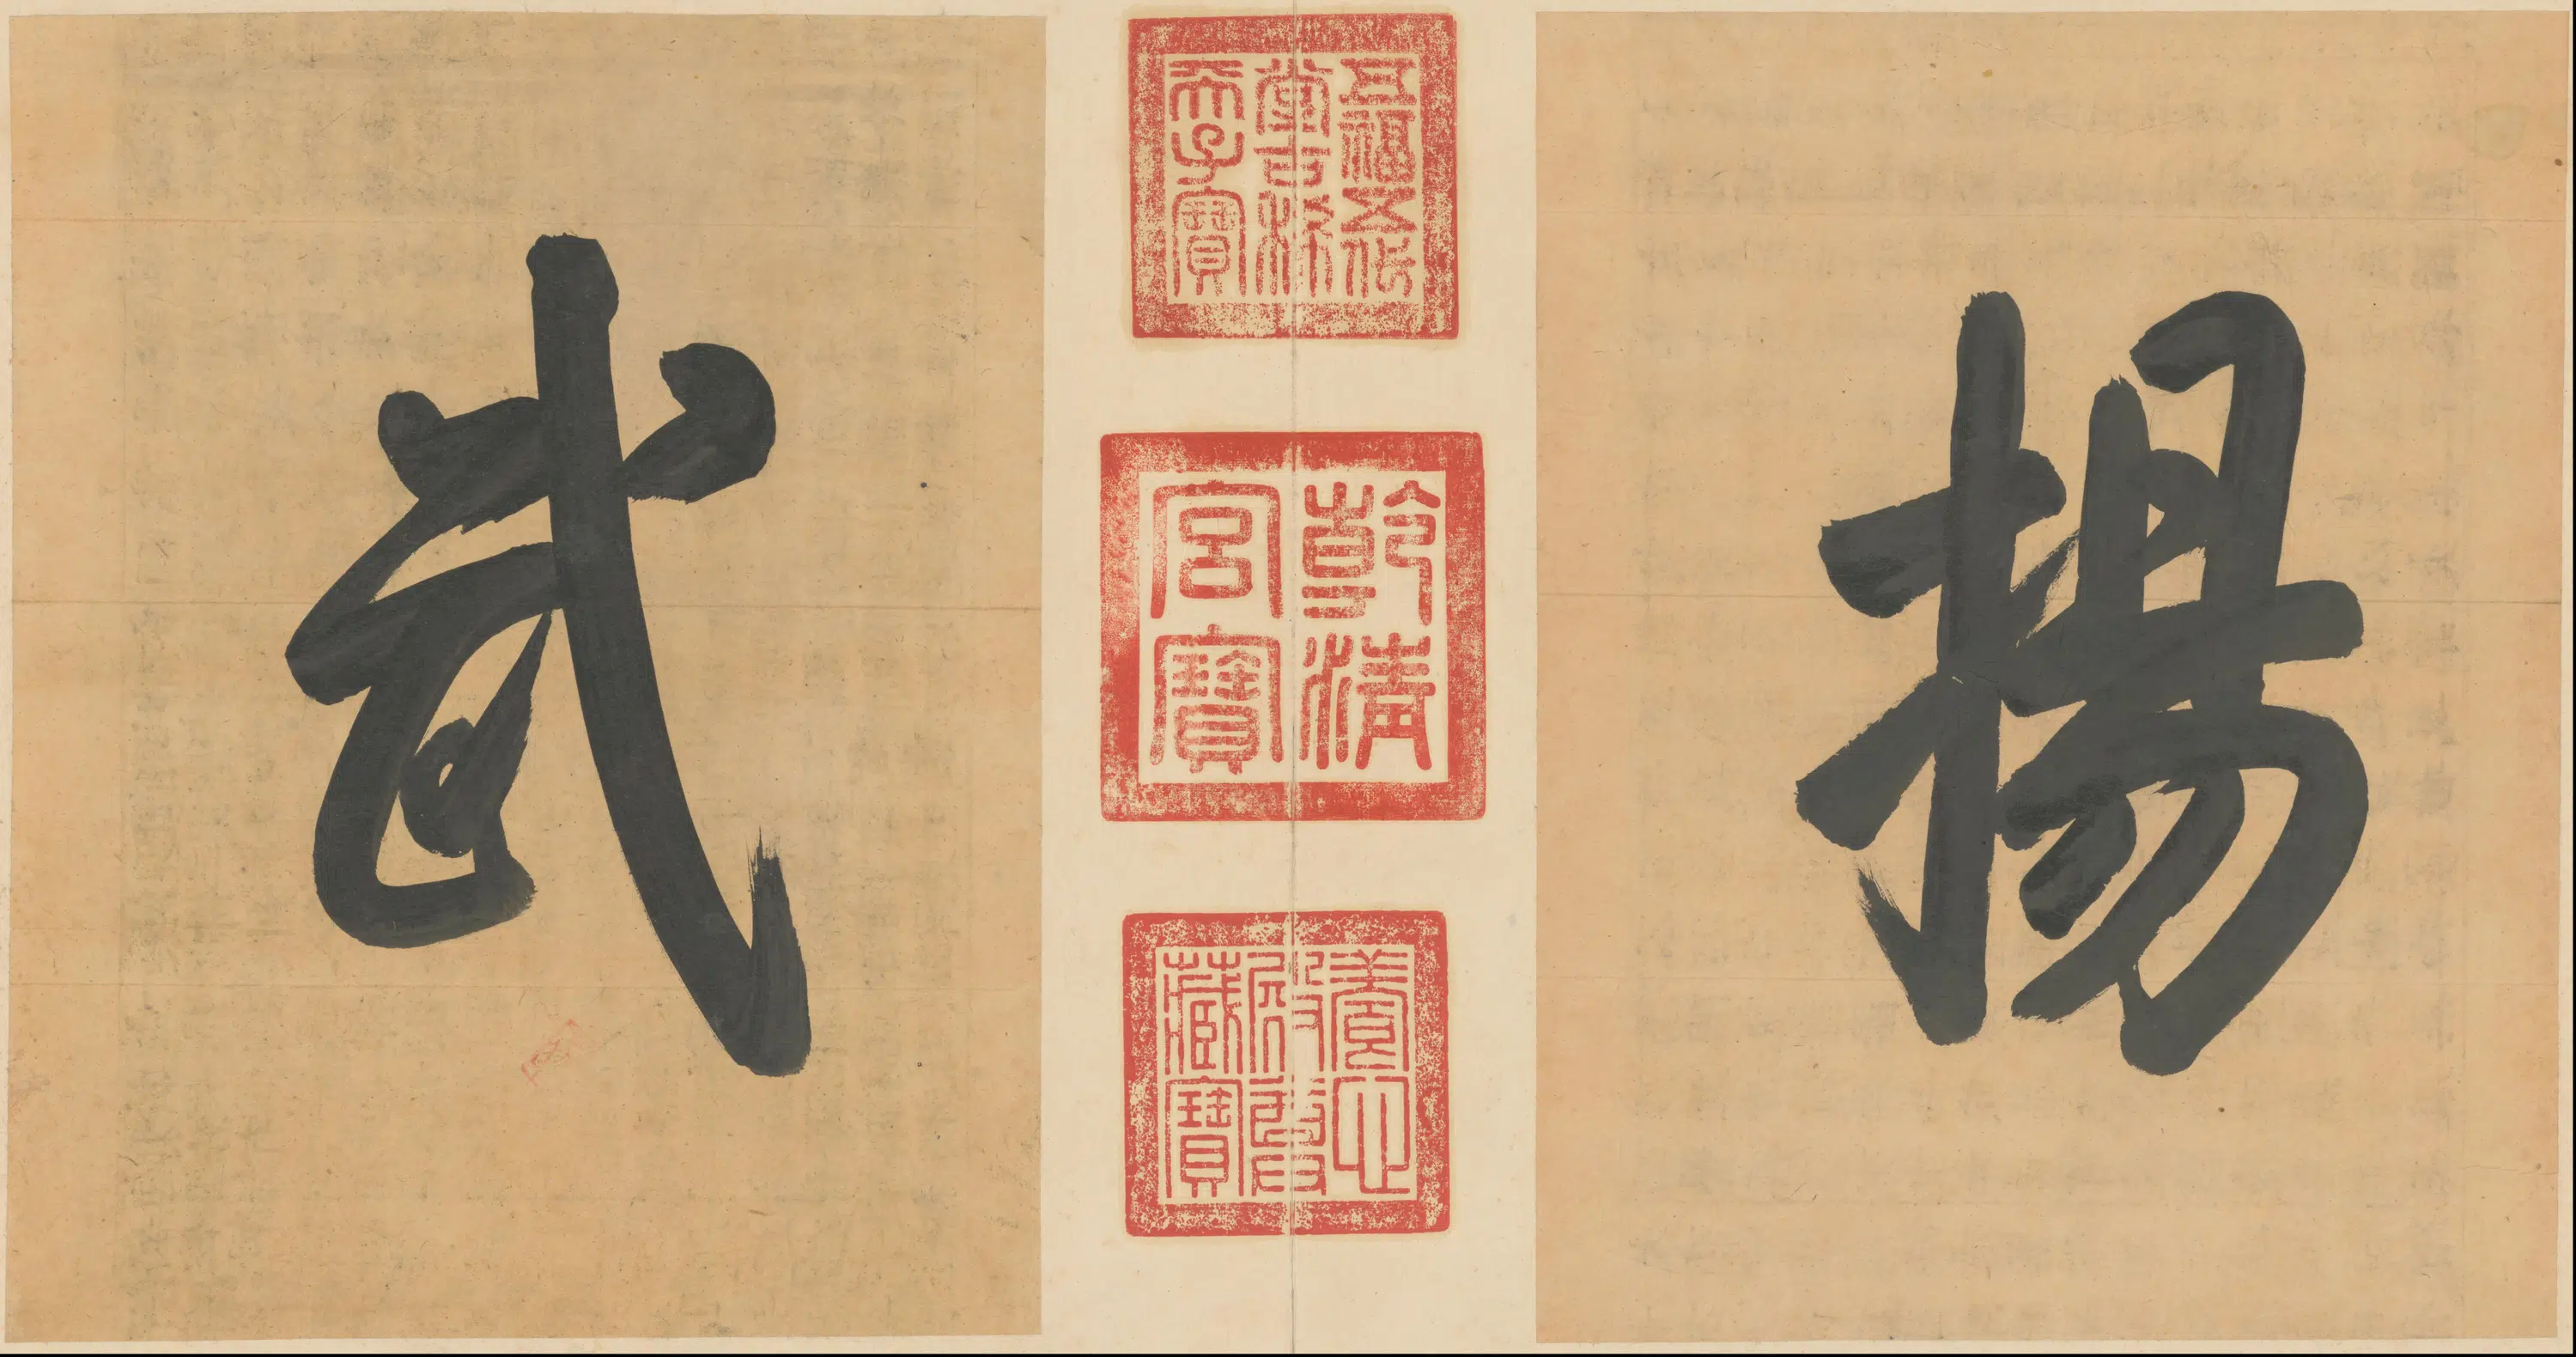 揚
五福五代
堂古稀
天子寶
乾清
宮寶
養心
殿尊
藏寶
武